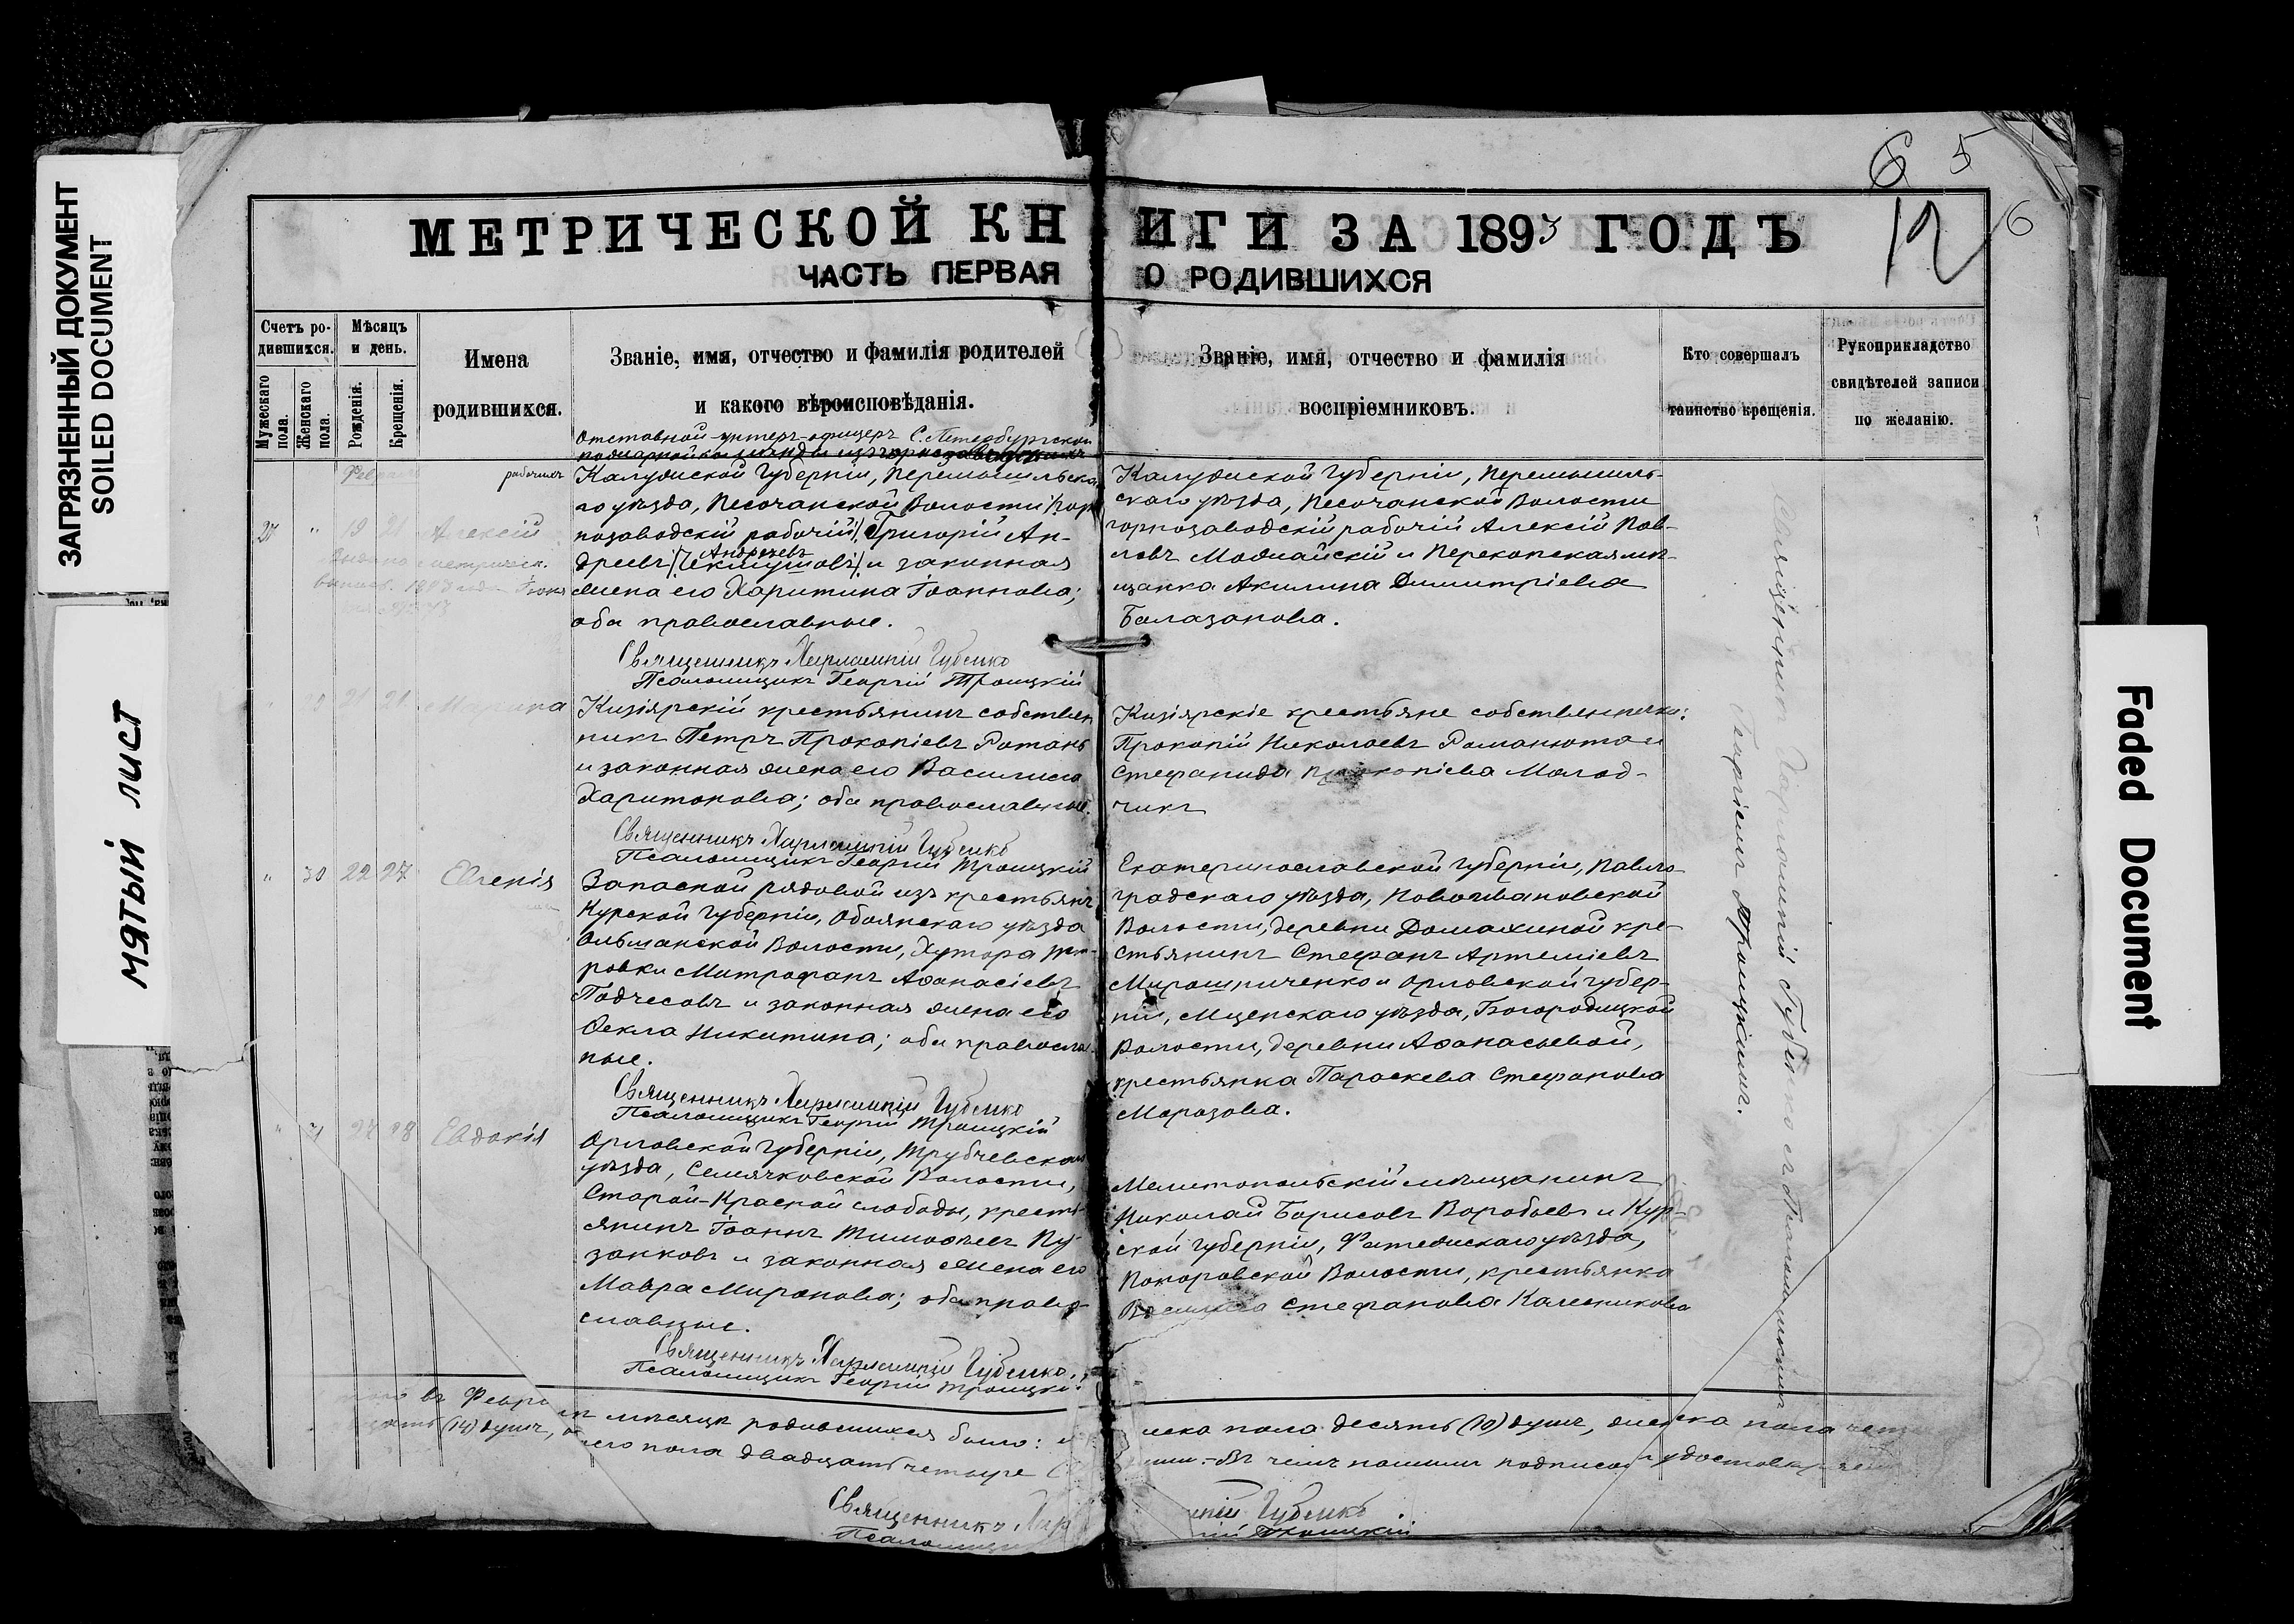 ЗАГРЯЗНЕННЫЙ ДОКУМЕНТ
SOILED DOCUMENT
МЯТЫЙ ЛИСТ
Faded Document
6 5
12 6
МЕТРИЧЕСКОЙ КНИГИ ЗА 1893 ГОДЪ
ЧАСТЬ ПЕРВАЯ О РОДИВШИХСЯ
Счетъ ро-
дившихся.
Мужескаго пола.
Женскаго пола.
Мѣсяцъ
и день.
Рожденія.
Крещенія.
Имена
родившихся.
Званіе, имя, отчество и фамилія родителей
и какого вѣроисповѣданія.
Званіе, имя, отчество и фамилія
воспріемниковъ.
Кто совершалъ
таинство крещенія.
Рукоприкладство
свидѣтелей записи
по желанію.
Отставной унтеръ-офицеръ С.Петербургской
рабочихъ
27 " 19 21 Алексій
Калужской Губерніи, Перемышльска-
го уѣзда, Песочанской Волости
нозаводскій рабочій Григорій Ан-
Андреевъ
дреевъ и законная
жена его Харитина Іоаннова;
оба православные.
Священникъ Харлампій Губенко
Псаломщикъ Георгій Троицкій
Калужской Губерніи, Перемышль-
скаго уѣзда, Песочанской Волости
горнозаводскій рабочій Алексій Пав-
ловъ Можайскій и Перекопская мѣ-
щанка Акилина Димитріева
Балазанова.
21 21 Марина
Кизіярскій крестьянинъ собствен
никъ Петръ Прокопіевъ
и законная жена его Василиса
Харитонова; оба православные.
Священникъ Харлампій Губенко
Псаломщикъ Георгій Троицкій
Кизіярскіе крестьяне собственники:
Прокопій Николаевъ Романюта и
Стефанида Прокопіева Молод-
чикъ
" 30 22 27 Евгенія
Запасной рядовой изъ крестьянъ
Курской Губерніи, Обоянскаго уѣзда
Ольшанской Волости, Хутора
ровки Митрофанъ Аѳанасіевъ
Подчесовъ и законная жена его
Ѳекла Никитина; оба правосла-
ные.
Священникъ Харлампій Губенко
Псаломщикъ Георгій Троицкій
Екатеринославской Губерніи, Павло-
градскаго уѣзда, Новоивановской
Волости, деревни Домахиной кре-
стьянинъ Стефанъ Артеміевъ
Мирошниченко и Орловской губер-
ніи, Мценскаго уѣзда, Богородицкой
Волости, деревни Аѳанасьевой,
крестьянка Параскева Стефанова
Морозова.
" 31 27 28 Евдокія
Орловской Губерніи, Трубчевскаго
уѣзда, Семячковской Волости,
Старой-Красной слободы, кресть-
янинъ Іоаннъ Тимоѳеевъ Пу-
занковъ и законная жена его
Мавра Миронова; оба право-
славные.
Священникъ Харлампій Губенко.
Псаломщикъ Георгій Троицкій
Мелитопольскій мѣщанинъ
Николай Борисовъ Воробьевъ и Кур-
ской Губерніи, Фатежскаго уѣзда,
Волости, крестьянка
Василиса Стефанова Калашникова
Священникъ Харлампій Губенко съ Псаломщикомъ
Георгіемъ Троицкимъ.
въ Февралѣ мѣсяцѣ родившихся было: мужеска пола десять (10) душъ, женска пола четы
(14) душъ, обоего пола двадцать четыре души.-Въ чемъ нашими подписами удостовѣряемъ
Священникъ Харлампій Губенко
Псаломщикъ Троицкій